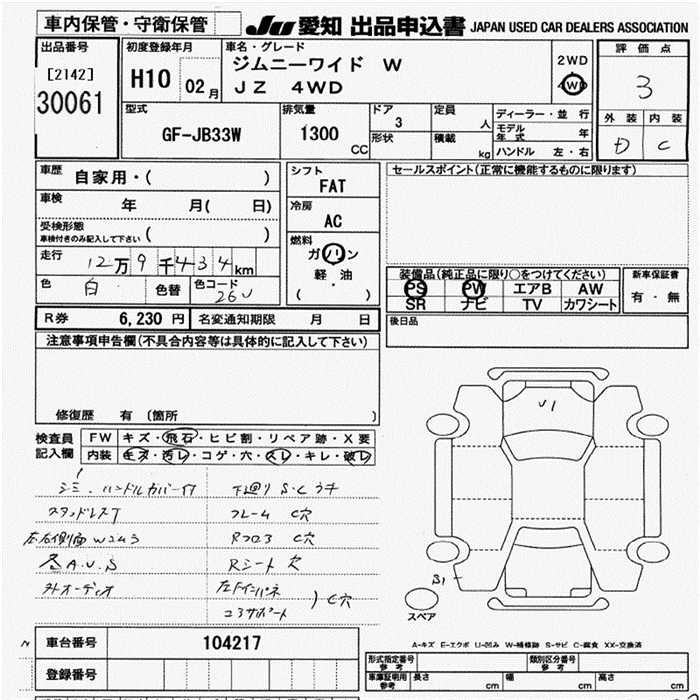 車内保管・守衛保管
JU 愛知 出品申込書 JAPAN USED CAR DEALERS ASSOCIATION
出品番号
[2142]
30061
初度登録年月
H10 02月
車名・グレード
ジムニーワイド W
JZ 4WD
2WD
4WD
評価点
3
外装 内装
D C
型式
GF-JB33W
排気量
1300
CC
ドア
3
形状
定員
人
積載
kg
ディーラー・並行
モデル年式 年
ハンドル 左・右
車歴 自家用・( )
車検 年 月( 日)
受検形態
車検付きのみ記入して下さい ( )
走行 12万9千434km
色 白 色替 色コード 26U
シフト
FAT
冷房
AC
燃料
ガソリン
軽・油
( )
セールスポイント(正常に機能するものに限ります)
装備品(純正品に限り○をつけてください)
PS PW エアB AW
SR ナビ TV カワシート
新車保証書
有・無
R券 6,230円 名変通知期限 月 日
後日品
注意事項申告欄(不具合内容等は具体的に記入して下さい)
修復歴 有 (箇所 )
検査員記入欄
FW キズ・飛石・ヒビ割・リペア跡・X要
内装 キズ・汚レ・コゲ・穴・スレ・キレ・破レ
ハンドルカバー付
下廻り S.C
フレーム C穴
Rフロア C穴
Rシート 穴
A.U.S
外オーディオ
コアサポート
C穴
U1
B1
スペア
A-キズ E-エクボ U-凹み W-補修跡 S-サビ C-腐食 XX-交換済
車台番号 104217
登録番号
形式指定番号 参考
類別区分番号 参考
車庫証明用 参考 長さ cm 幅 cm 高さ cm